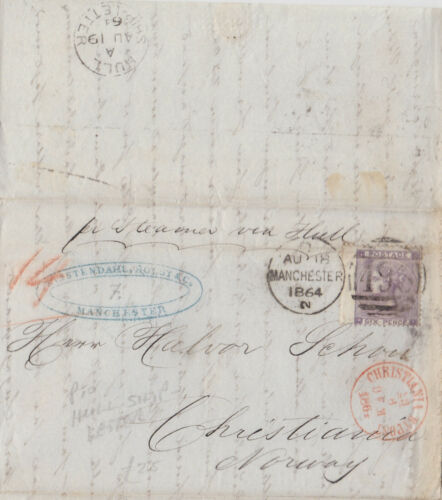 HULL
SHIP-LETTER
A
AU 19
64
pr Steamer via Hull
AU 18
MANCHESTER
1864
N
POSTAGE
SIX PENCE
& Co.
MANCHESTER
Herr Halvor Schou
Christiania
Norway
CHRISTIANIA
1864
Pro
HULL SHIP
LETTER
£25